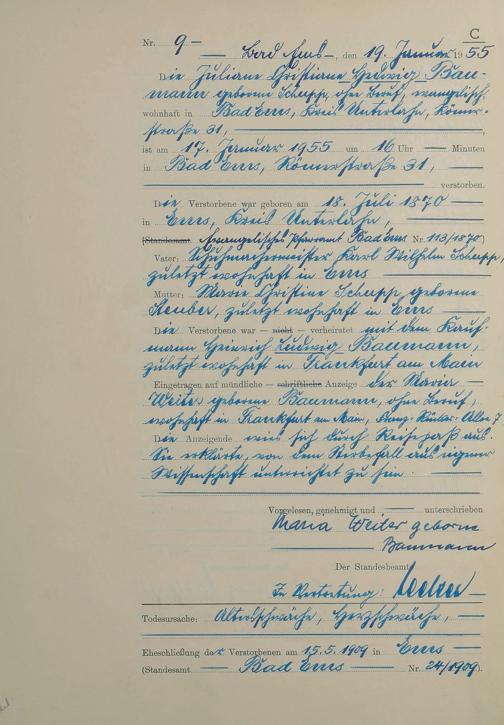 C
Nr. 9 —
— Bad Ems —, den 19. Januar 1955
Die Juliane Christiane Hedwig Bau-
mann geborene Scheupp, ohne Beruf, evangelisch
wohnhaft in Bad Ems, Kreis Unterlahn, Römer-
straße 31, —
ist am 17. Januar 1955 um 16 Uhr — Minuten
in Bad Ems, Römerstraße 31, —
verstorben.
Die Verstorbene war geboren am 18. Juli 1870 —
in Ems, Kreis Unterlahn, —
(Standesamt Evangelisches Pfarramt Bad Ems Nr. 113/1870)
Vater: Schuhmachermeister Karl Wilhelm Scheupp,
zuletzt wohnhaft in Ems —
Mutter: Marie Christine Scheupp geborene
zuletzt wohnhaft in Ems —
Die Verstorbene war — nicht — verheiratet mit dem Kauf-
mann Heinrich Ludwig Baumann,
zuletzt wohnhaft in Frankfurt am Main
Eingetragen auf mündliche — schriftliche Anzeige der Maria —
Weiter geborene Baumann, ohne Beruf,
wohnhaft in Frankfurt am Main, Allee 7
Die Anzeigende wies sich durch Reisepaß aus.
Sie erklärte, von dem Sterbefall aus eigener
Wissenschaft unterrichtet zu sein.
Vorgelesen, genehmigt und — unterschrieben
Maria Weiter geborene
— Baumann
Der Standesbeamte
In Vertretung:
Todesursache: Altersschwäche, Herzschwäche, —
Eheschließung der Verstorbenen am 15.5.1909 in Ems —
(Standesamt — Bad Ems — Nr. 24/1909).